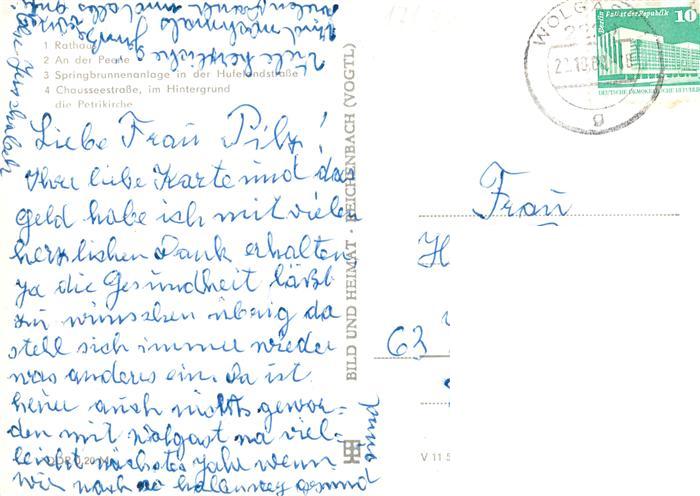 1 Rathaus
2 An der Peene
3 Springbrunnenanlage in der Hufelandstraße
4 Chausseestraße, im Hintergrund
die Petrikirche
Liebe Frau Pilz!
Ihre liebe Karte und das
geld habe ich mit vielen
herzlichen Dank erhalten,
ja die Gesundheit läßt
zu wünschen übrig da
stell sich immer wieder
was anderes ein. Da ist
heuer auch nichts gewor=
den mit Wolgast na viel-
leicht nächstes Jahr wenn
wir noch so halbweg gesund
sind
Vielen Dank und alles gute
und nochmals
Viele herzliche Grüße
BILD UND HEIMAT · REICHENBACH (VOGTL)
DDR 0,20 M
V 11 5
WOLGAST
22
g
Berlin, Palast der Republik
10
DEUTSCHE DEMOKRATISCHE REPUBLIK
Frau
H
62